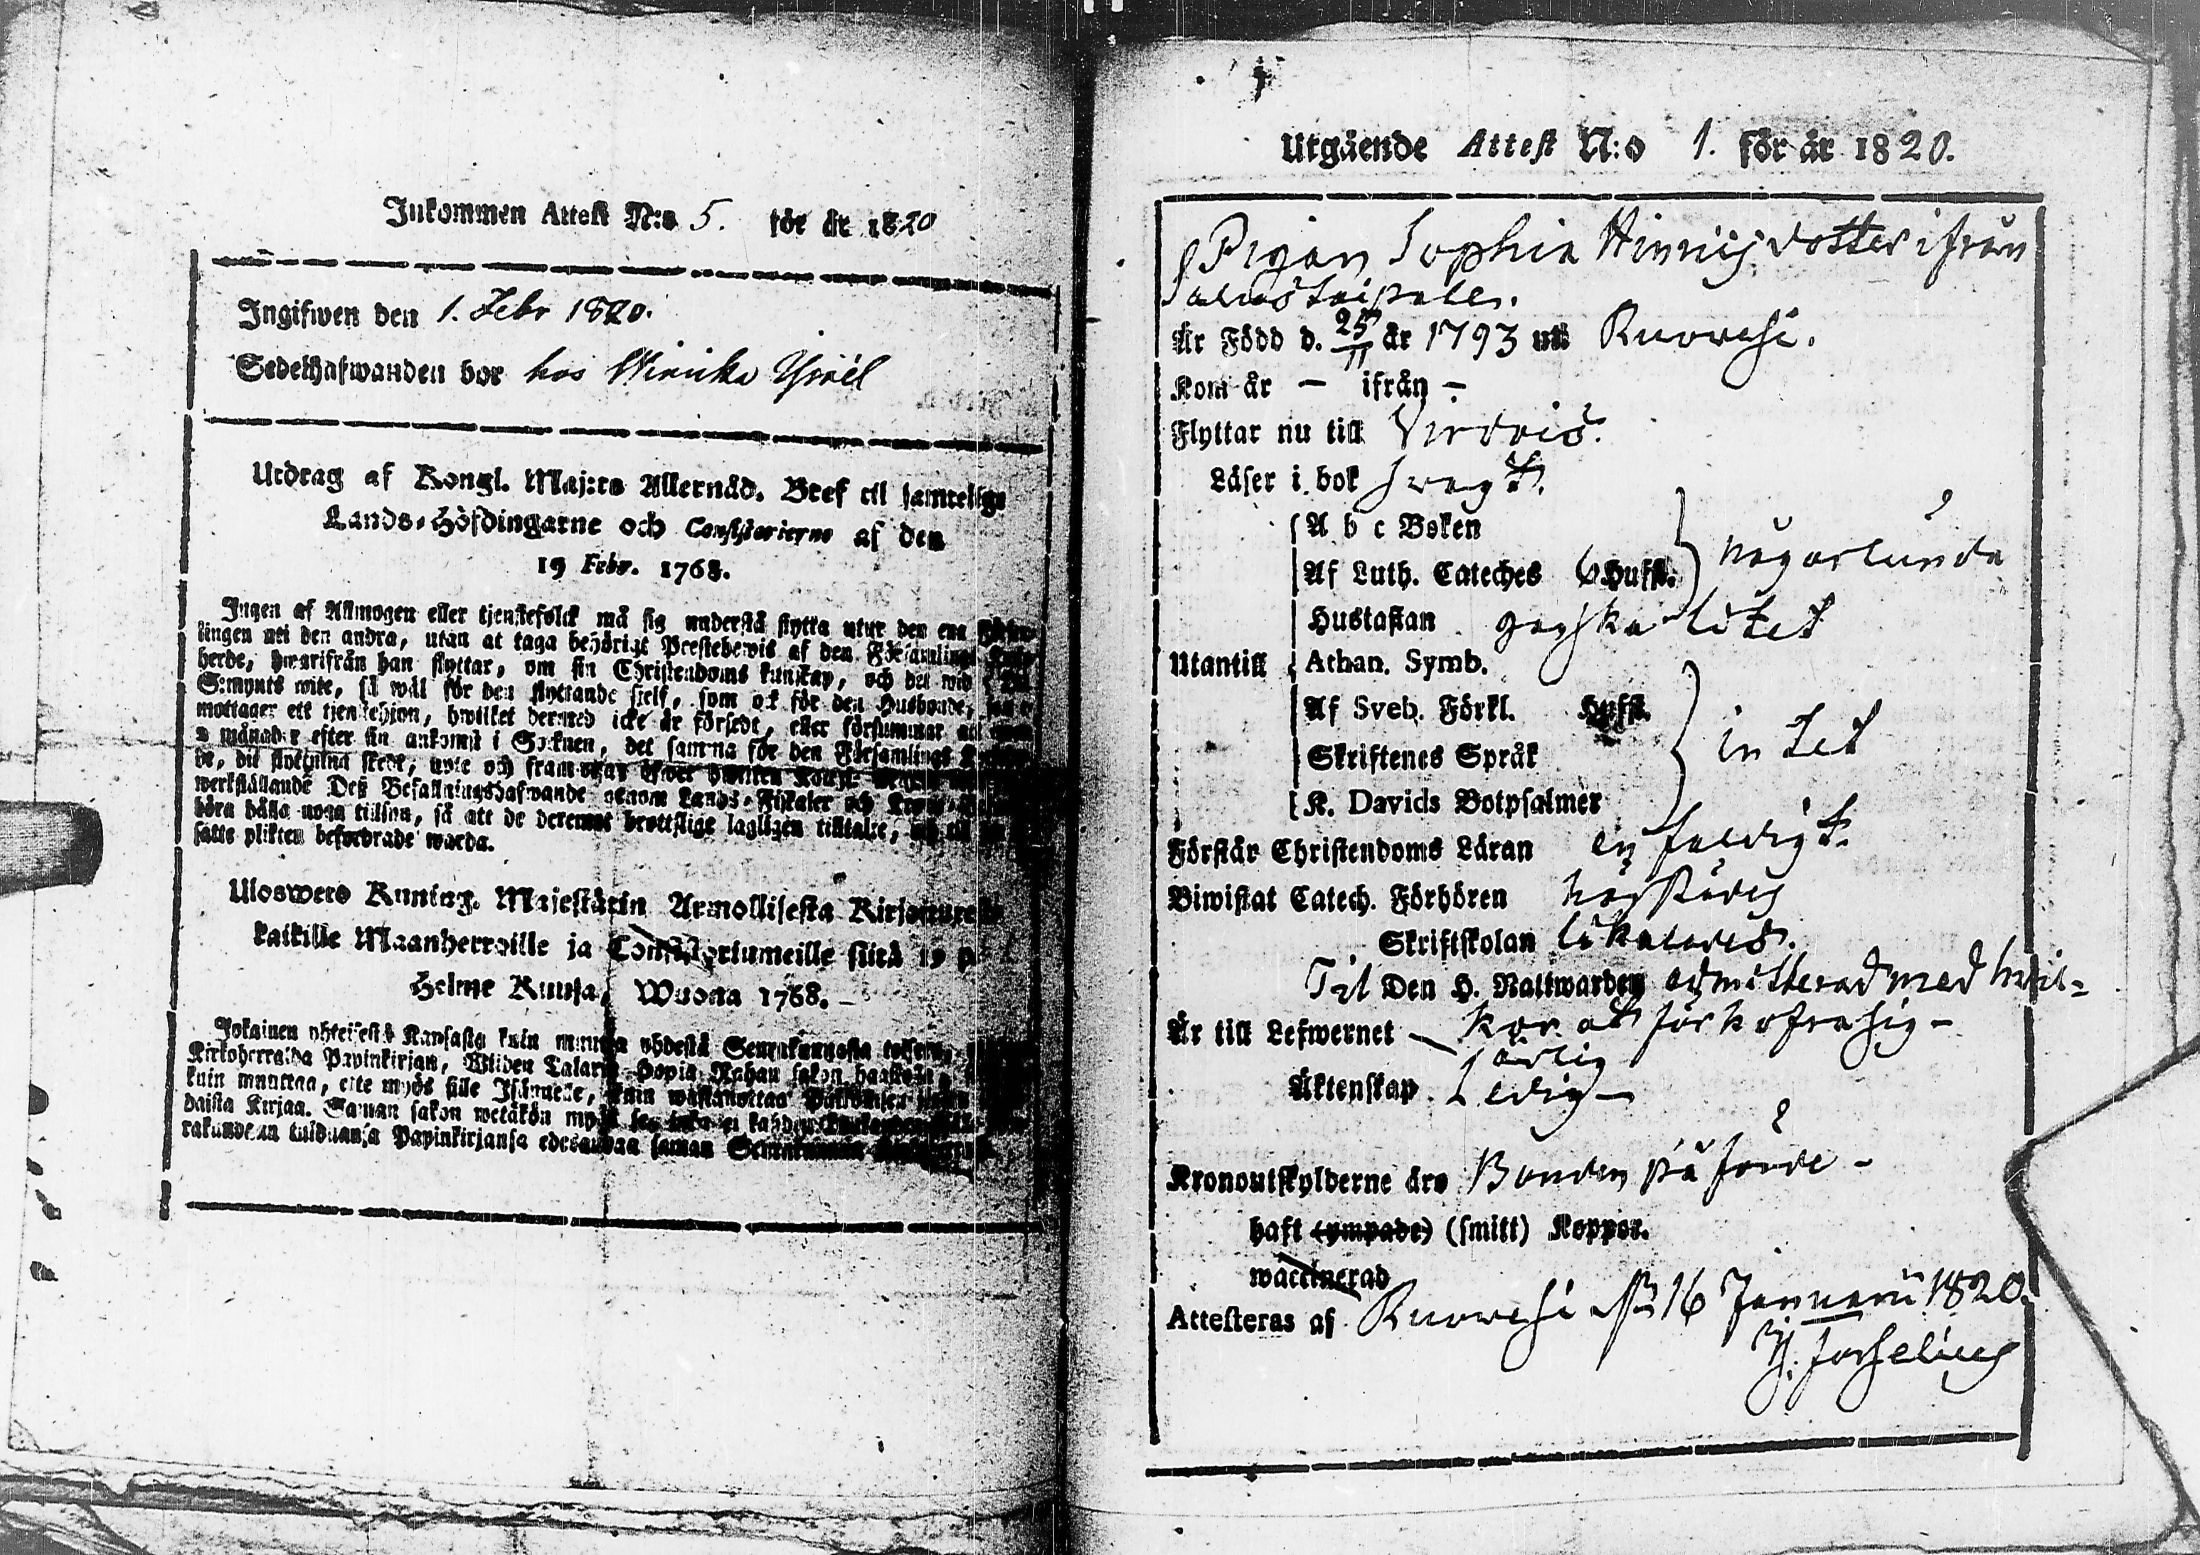 Inkommen Attest N:o 5. för år 1820
Ingifwen den 1. Febr 1820.
Sedelhafwanden bor hos Winika
Utdrag af Kongl. Maj:ts Allernåd. Bref til samtelige
Lands-Höfdingarne och Consistorierne af den
19 Febr. 1768.
Ingen af Allmogen eller tjenstefolck må sig understå flytta utur den ena
lingen uti den andra, utan at taga behörigt Prestebewis af den Församlings
herde, hwarifrån han flyttar, om sin Christendoms kunskap, och det wid
S:mynts wite, så wäl för den flyttande sielf, som ock för den Husbonde,
mottager ett tjenstehjon, hwilket dermed icke är försedt, eller försummar
månader efter sin ankomst i Socknen, det samma för den Församlings
werkställande Deß Befallningshafwande genom Lands-Fiskaler och
böra hålla noga tillsyn, så att de deremot brottslige lagligen tilltalte,
satte plikten befordrade warda.
Ulosweto Kuning. Majestätin Armollisesta
kaikille Maanherroille ja Consistoriumeille siitä 19 p.
Helme Kuusa, Wuonna 1768.
Jokainen yhteisestä Kansasta kuin muutta yhdestä Seurakunnasta
Kirkoherralda Papinkirjan, Wiiden Talarin Hopia Rahan sakon
kuin muuttaa, ette myös sille Isännelle, kuin
daista Kirjaa. Saman sakon wetäkön myös
Papinkirjansa edesandaa saman
Utgående Attest N:o 1. för år 1820.
Pigan Sophia Hinrichsdotter ifrån
Är Född d. 25/11 år 1793 uti Ruowesi.
Kom år — ifrån —
Flyttar nu till Virdois.
Läser i bok swagt.
A b c Boken
Af Luth. Cateches 6 Hufst. någorlunda
Hustaflan ganska litet
Utantill Athan. Symb.
Af Sveb. Förkl. Hufst.
Skriftenes Språk intet
K. Davids Botpsalmer
Förstår Christendoms Läran enfaldigt.
Biwistat Catech. Förhören
Skriftskolan likaledes.
Til Den H. Nattwarden admitterad med hwil-
Är till Lefwernet — kor at förkofra sig —
ärlig
Äktenskap Ledig —
Kronoutskylderne äro Bonden på
haft (ympade) (smitt) Koppor.
waccinerad
Attesteras af Ruowesi d. 16 Januarii 1820.